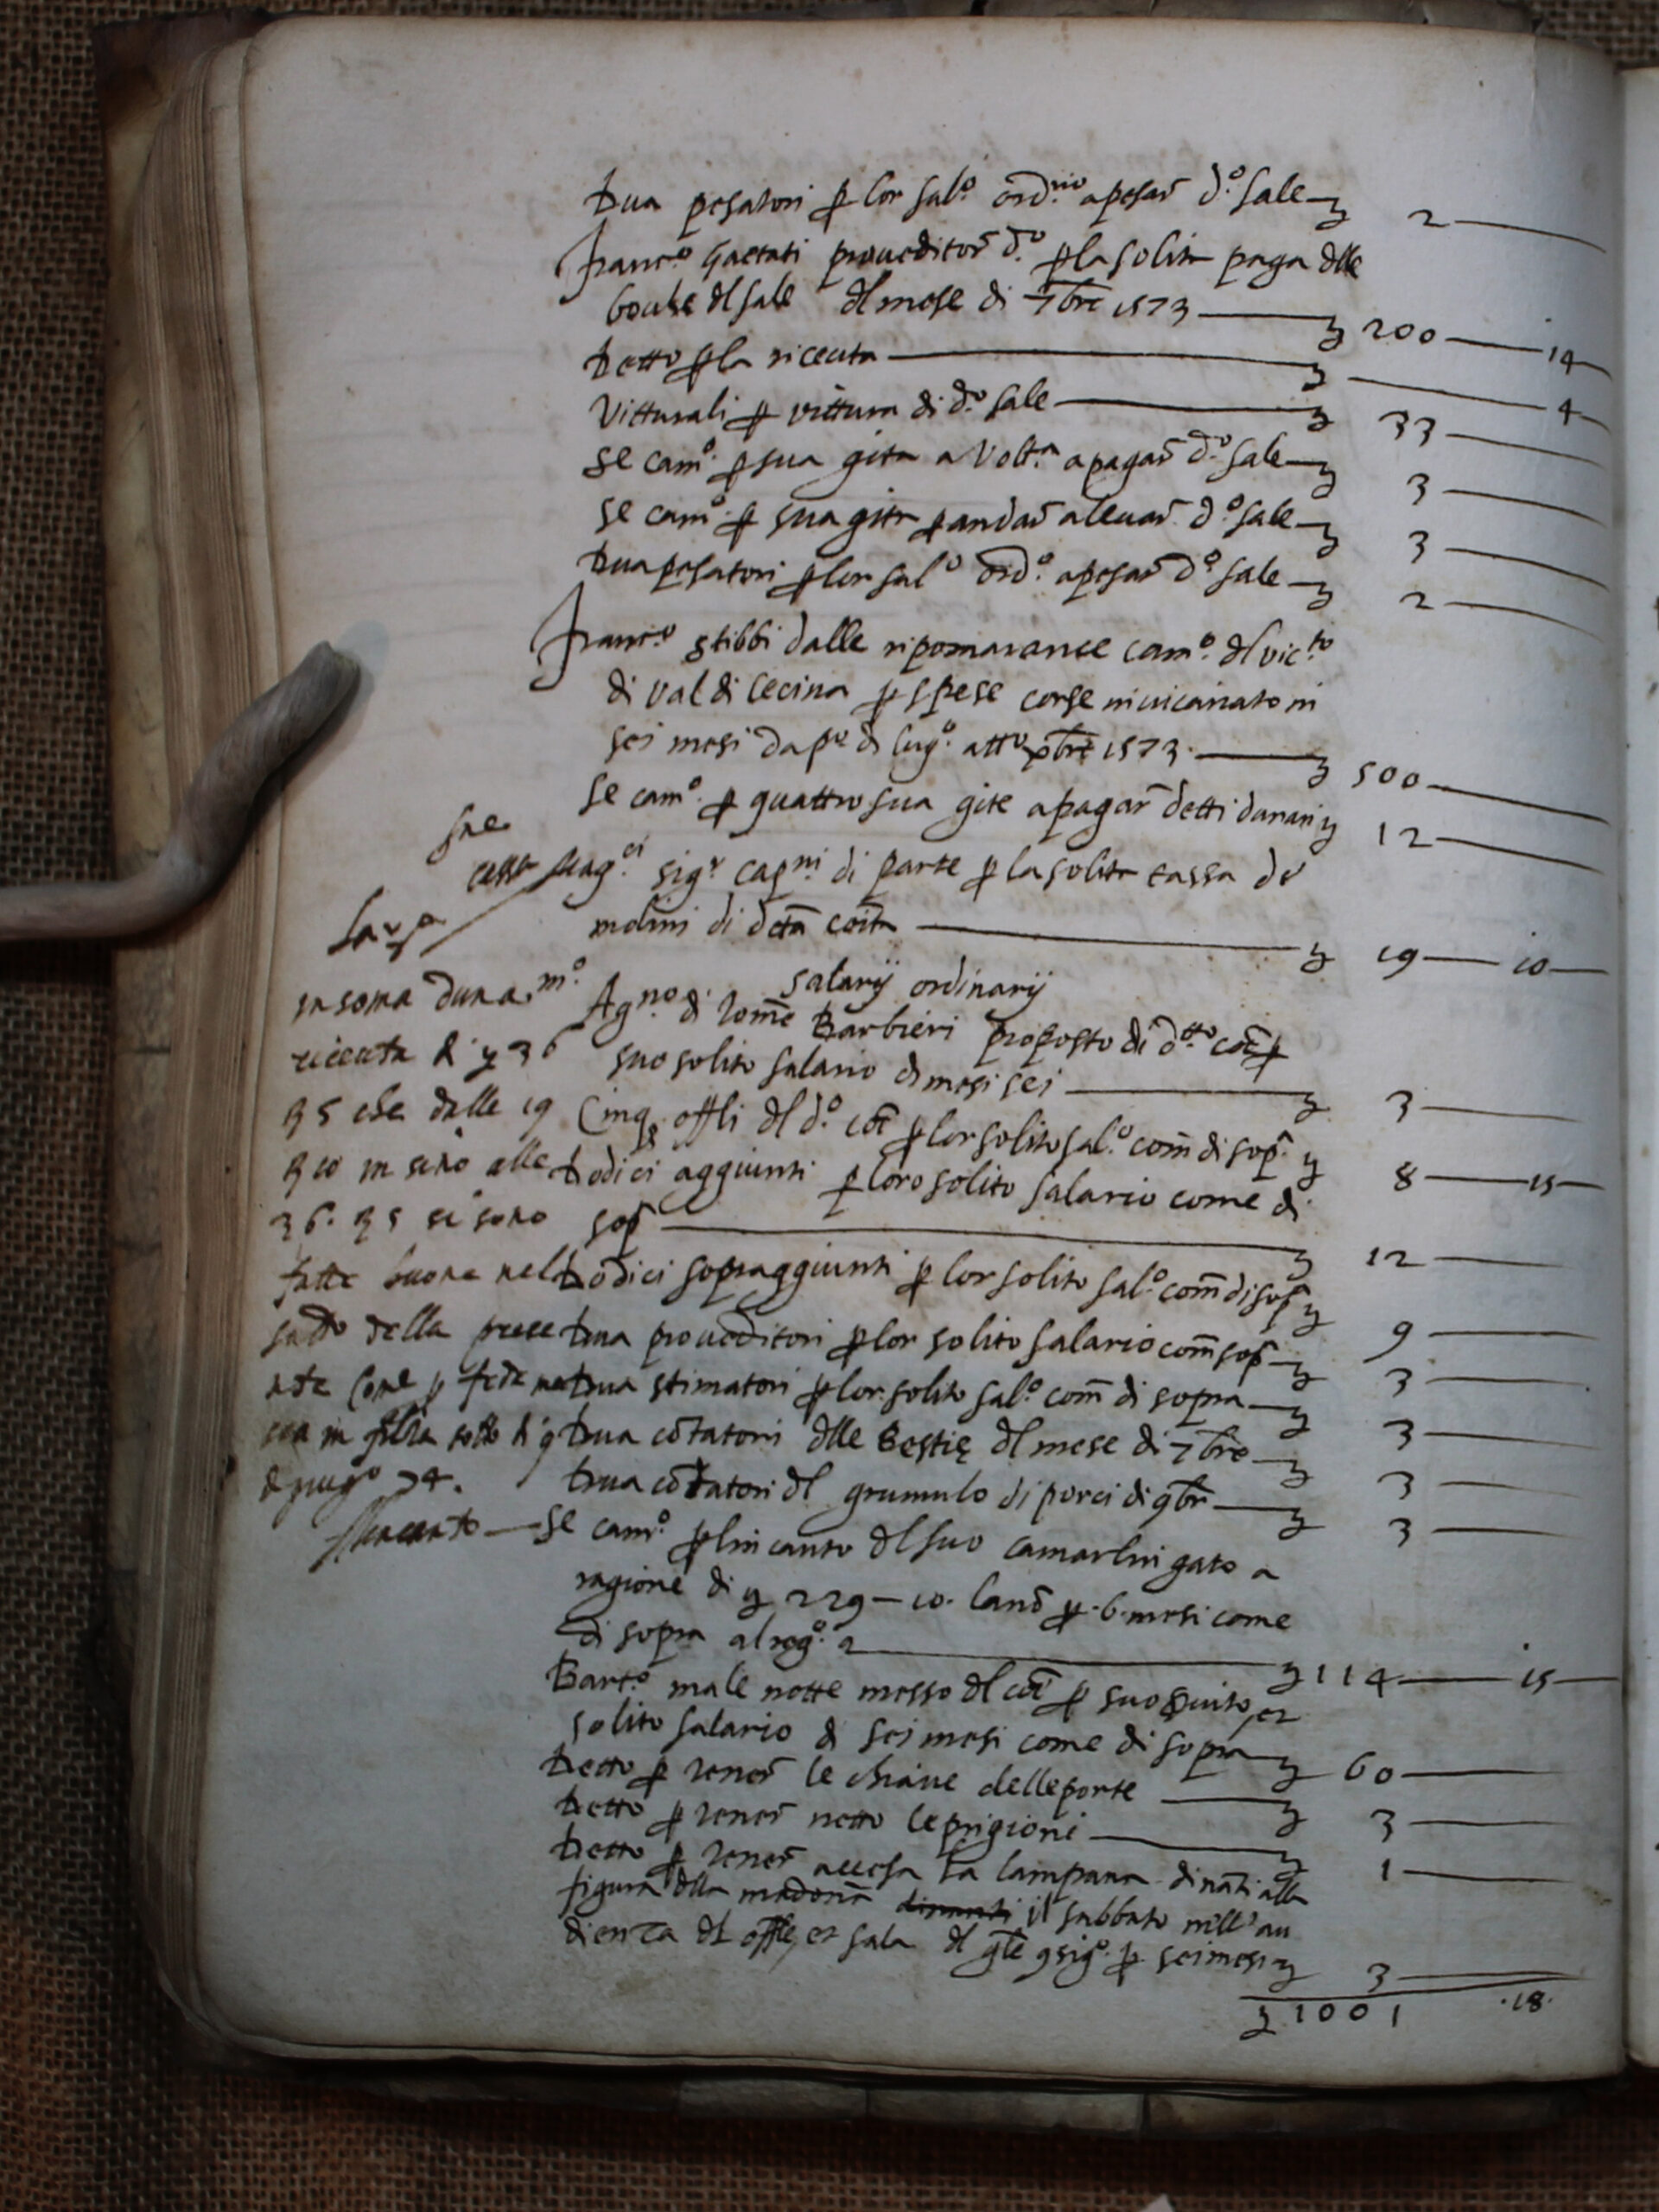 Dua pesatori p lor sal.o ord.rio a pesar d.o sale 2
Franc.o Gaetati proveditor d.o p la solita paga dlle
bocche dl sale dl mese di 7bre 1573 200 14
Detto p la riceuta 4
Vitturali p vittura di d.o sale 33
Se cam.o p sua gita a Volt.a a pagar d.o sale 3
Se cam.o p sua gita p andar a levar d.o sale 3
Dua pesatori p lor sal.o ord.o a pesar d.o sale 2
Franc.o stibbi dalle ripomarance cam.o dl vic.to
di val di cecina p spese corse in vicariato in
sei mesi da p.o di lug.o a tt.o xbre 1573 500
Se cam.o p quattro sua gite a pagar detti danari 12
Mag.ci sig.r cap.ni di parte p la solita tassa de
molini di detta coita 19 10
Salarij ordinarij
Ag.no di Tome Barbieri proposto di d.tto coe p
suo solito salario di mesi sei 3
Cinq offli dl d.o coe p lor solito sal.o com di sop.a 8 15
Dodici aggiunti p loro solito salario come di
sop 12
Dodici sopraggiunti p lor solito sal.o com di sop 9
Dua proveditori p lor solito salario com sop 3
Dua stimatori p lor solito sal.o com di sopra 3
Dua cotatori dlle Bestie dl mese di 7bre 3
Dua cotatori dl grumulo di porci di 9br 3
Se cam.o p lincanto dl suo camarlingato a
ragione di 229 – 10. lano p .6. mesi come
di sopra al reg.o 2 114 15
Bart.o male notte messo dl coe p suo
solito salario di sei mesi come di sopra 60
Detto p tener le chiave delle porte 3
Detto p tener netto le prigioni 1
Detto p tener accesa la lampana dinati alla
figura dlla madona il sabbato nell'au
dienza dl offle, et sala dl gle 9sig.o p sei mesi 3
1001 .18.
in soma duna
riceuta di 36
5 che dalle 19
10 in sino alle
36. 5 si sono
fatte buone nel
saldo della prese
nte come p fede
in filza sotto di 9
di giug.o 74.
Incanto